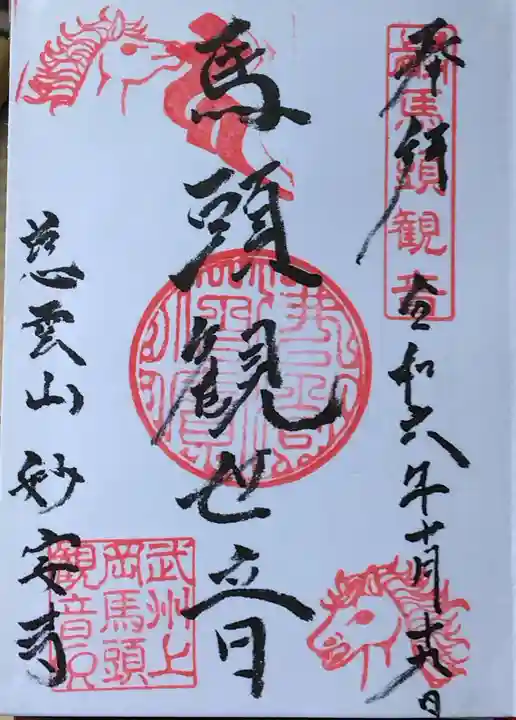 奉拝 令和六年十月十九日
馬頭観世音
慈雲山 妙安寺
武州上
岡馬頭
観音印